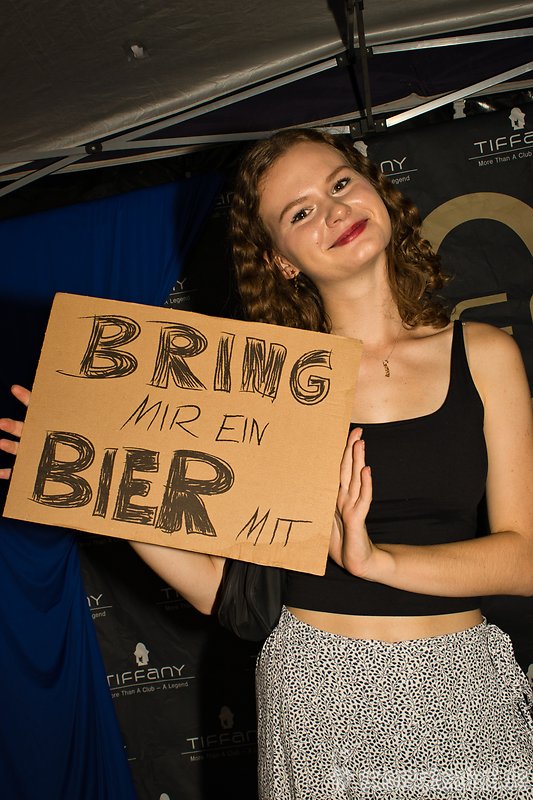 TIFFANY
More Than A Club – A Legend
BRING
MIR EIN
BIER
MIT
TIFFANY
More Than A Club – A Legend
TIFFANY